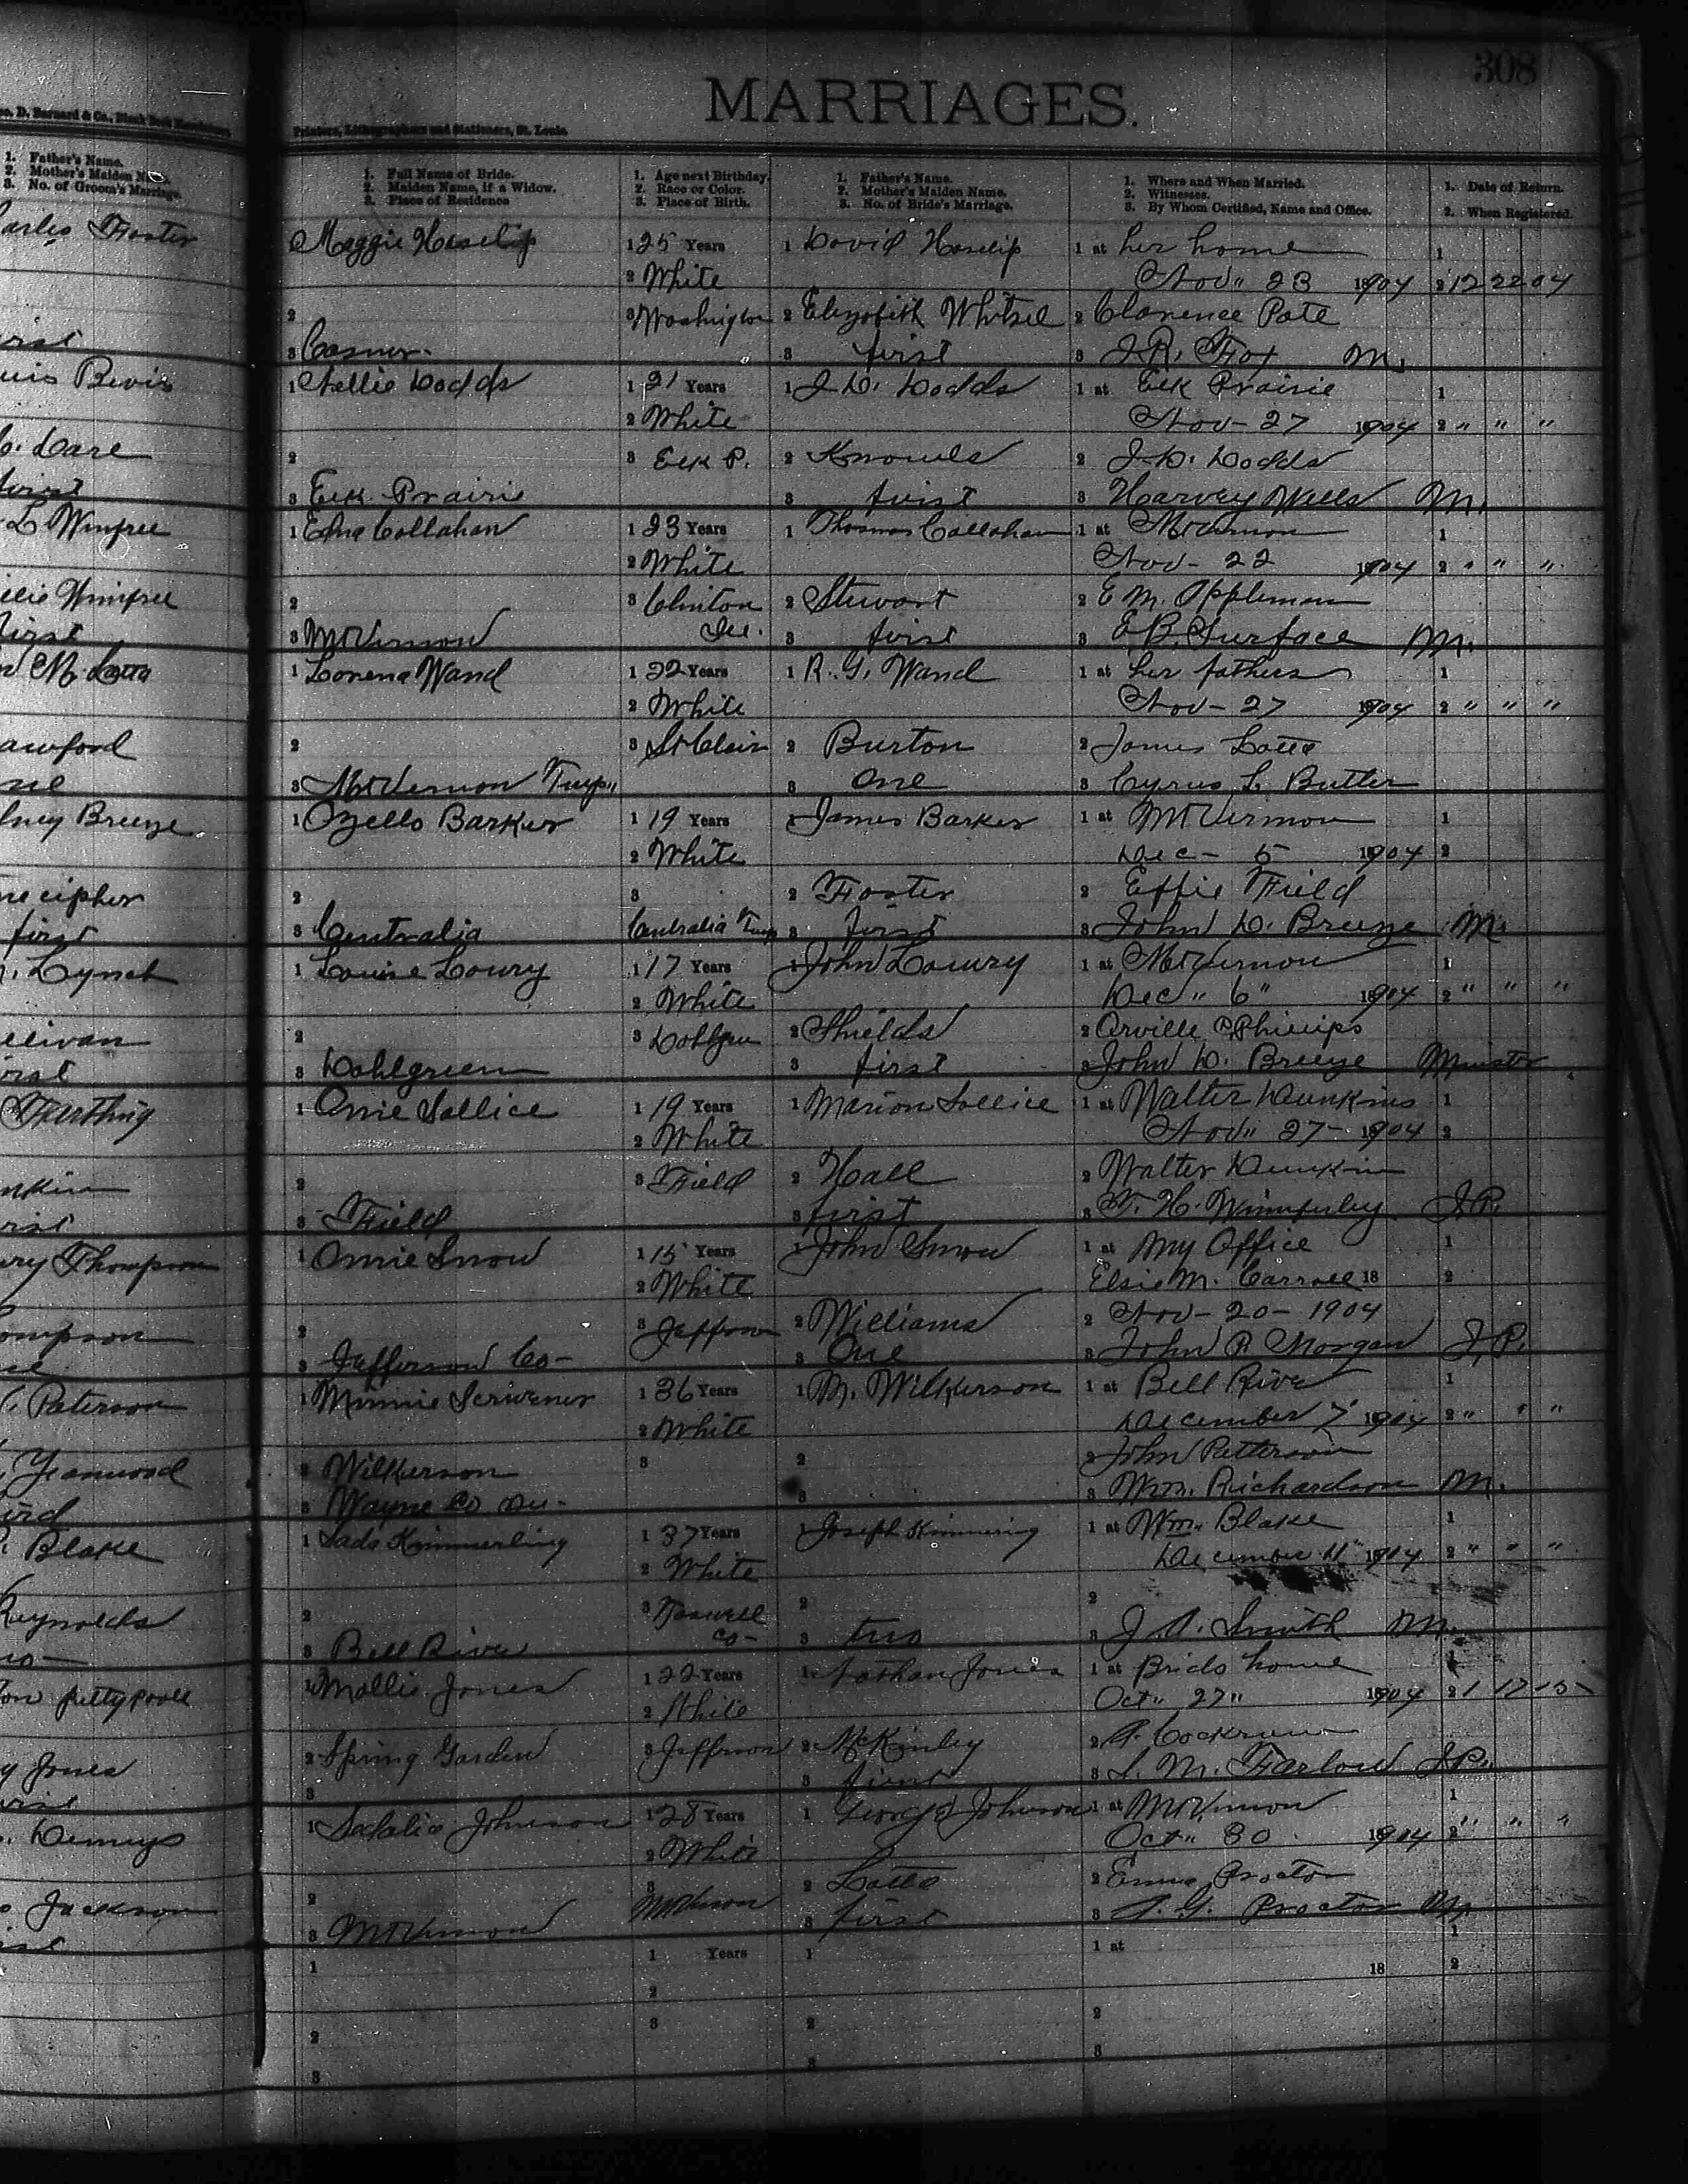 308
MARRIAGES.
Geo. D. Barnard & Co., Blank Book
Printers, Lithographers and Stationers, St. Louis.
1. Father's Name.
2. Mother's Maiden Name.
3. No. of Groom's Marriage.
1. Full Name of Bride.
2. Maiden Name, if a Widow.
3. Place of Residence
1. Age next Birthday.
2. Race or Color.
3. Place of Birth.
1. Father's Name.
2. Mother's Maiden Name.
3. No. of Bride's Marriage.
1. Where and When Married.
2. Witnesses.
3. By Whom Certified, Name and Office.
1. Date of Return.
2. When Registered.
arles Foster
Maggie Haselip 1 25 Years 1 David Haselip 1 at her home 1
2 White Nov" 23 1904 2 12 22 04
2 3 Washington 2 Elizabith Whitsel 2 Clarence Pate
3 Casner. 3 first 3 J.R. Fox M.
uis Bevis
1 Nellie Dodds 1 21 Years 1 J.D. Dodds 1 at Elk Prairie 1
2 White Nov- 27 1904 2 " " "
Dare
2 3 Elk P. 2 Knowels 2 J.D. Dodds
first
3 Elk Prairie 3 first 3 Harvey Wells M.
L Winfree
1 Edna Callahan 1 23 Years 1 Thosmas Callahan 1 at Mt Vernon 1
2 White Nov- 22 1904 2 " " "
Winfree
2 3 Clinton 2 Stewart 2 E M. Appleman
first
3 Mt Vernon Ill. 3 first 3 E.B. Surface M.
M. Latta
1 Lorena Wand 1 22 Years 1 R.G. Wand 1 at her fathers 1
2 White Nov- 27 1904 2 " " "
awford
2 3 St Clair 2 Burton 2 James Latta
3 Mt Vernon Twp" 3 one 3 Cyrus L. Butler
lney Breeze
1 Ozello Barker 1 19 Years 1 James Barker 1 at Mt Vernon 1
2 White Dec- 5 1904 2
necipher
2 3 2 Foster 2 Effie Field
first
3 Centralia Centralia Twp 3 first 3 John D. Breeze M.
Lynch
1 Louise Lowry 1 17 Years 1 John Lowry 1 at Mt Vernon 1
2 White Dec" 6" 1904 2 " " "
ullivan
2 3 Dahlgren 2 Shields 2 Orville Phillips
3 Dahlgreen 3 first 3 John D. Breeze Minister
Farthing
1 Orrie Sallice 1 19 Years 1 Marion Sollice 1 at Walter Dunkins 1
2 White Nov" 27- 1904 2
nkin
2 3 Field 2 Hall 2 Walter Dunkin
3 Field 3 first 3 T. H. Wimperley J.P.
Thompson
1 Orrie Snow 1 15 Years 1 John Snow 1 at My Office 1
2 White Elsie M. Carroll 18 2
ompson
2 3 Jefferson 2 Williams 2 Nov- 20- 1904
3 Jefferson Co- 3 One 3 John R Morgan J.P.
Paterson
1 Minnie Scrivener 1 36 Years 1 M. Wilkerson 1 at Bell River 1
2 White December 7 1904 2 " " "
Yearwood
2 Wilkerson 3 2 2 John Patterson
3 Wayne Co Ill- 3 3 Wm. Richardson M.
Blake
1 Sada Kimmerling 1 37 Years 1 Joseph Kimmering 1 at Wm. Blake 1
2 White December 11" 1904 2 " " "
Reynolds
2 3 Co- 2 2
3 Bell River 3 two 3 J. A. Smith M.
pettypool
1 Mollie Jones 1 22 Years 1 Nathan Jones 1 at Brids home 1
2 White Oct" 27" 1904 2 1 17 05
y Jones
2 Spring Garden 3 Jefferson 2 McKinley 2 A. Cockrum
3 3 first 3 L. M. Farlow J.P.
Jackson
1 Sedalia Johnson 1 28 Years 1 George Johnson 1 at Mt Vernon 1
2 White Oct" 30 1904 2 " " "
2 3 2 Latta 2 Emma Proctor
3 Mt Vernon Mt Vernon 3 first 3 A. G. Proctor M.
1 1 Years 1 1 at 1
2 18 2
2 3 2 2
3 3 3